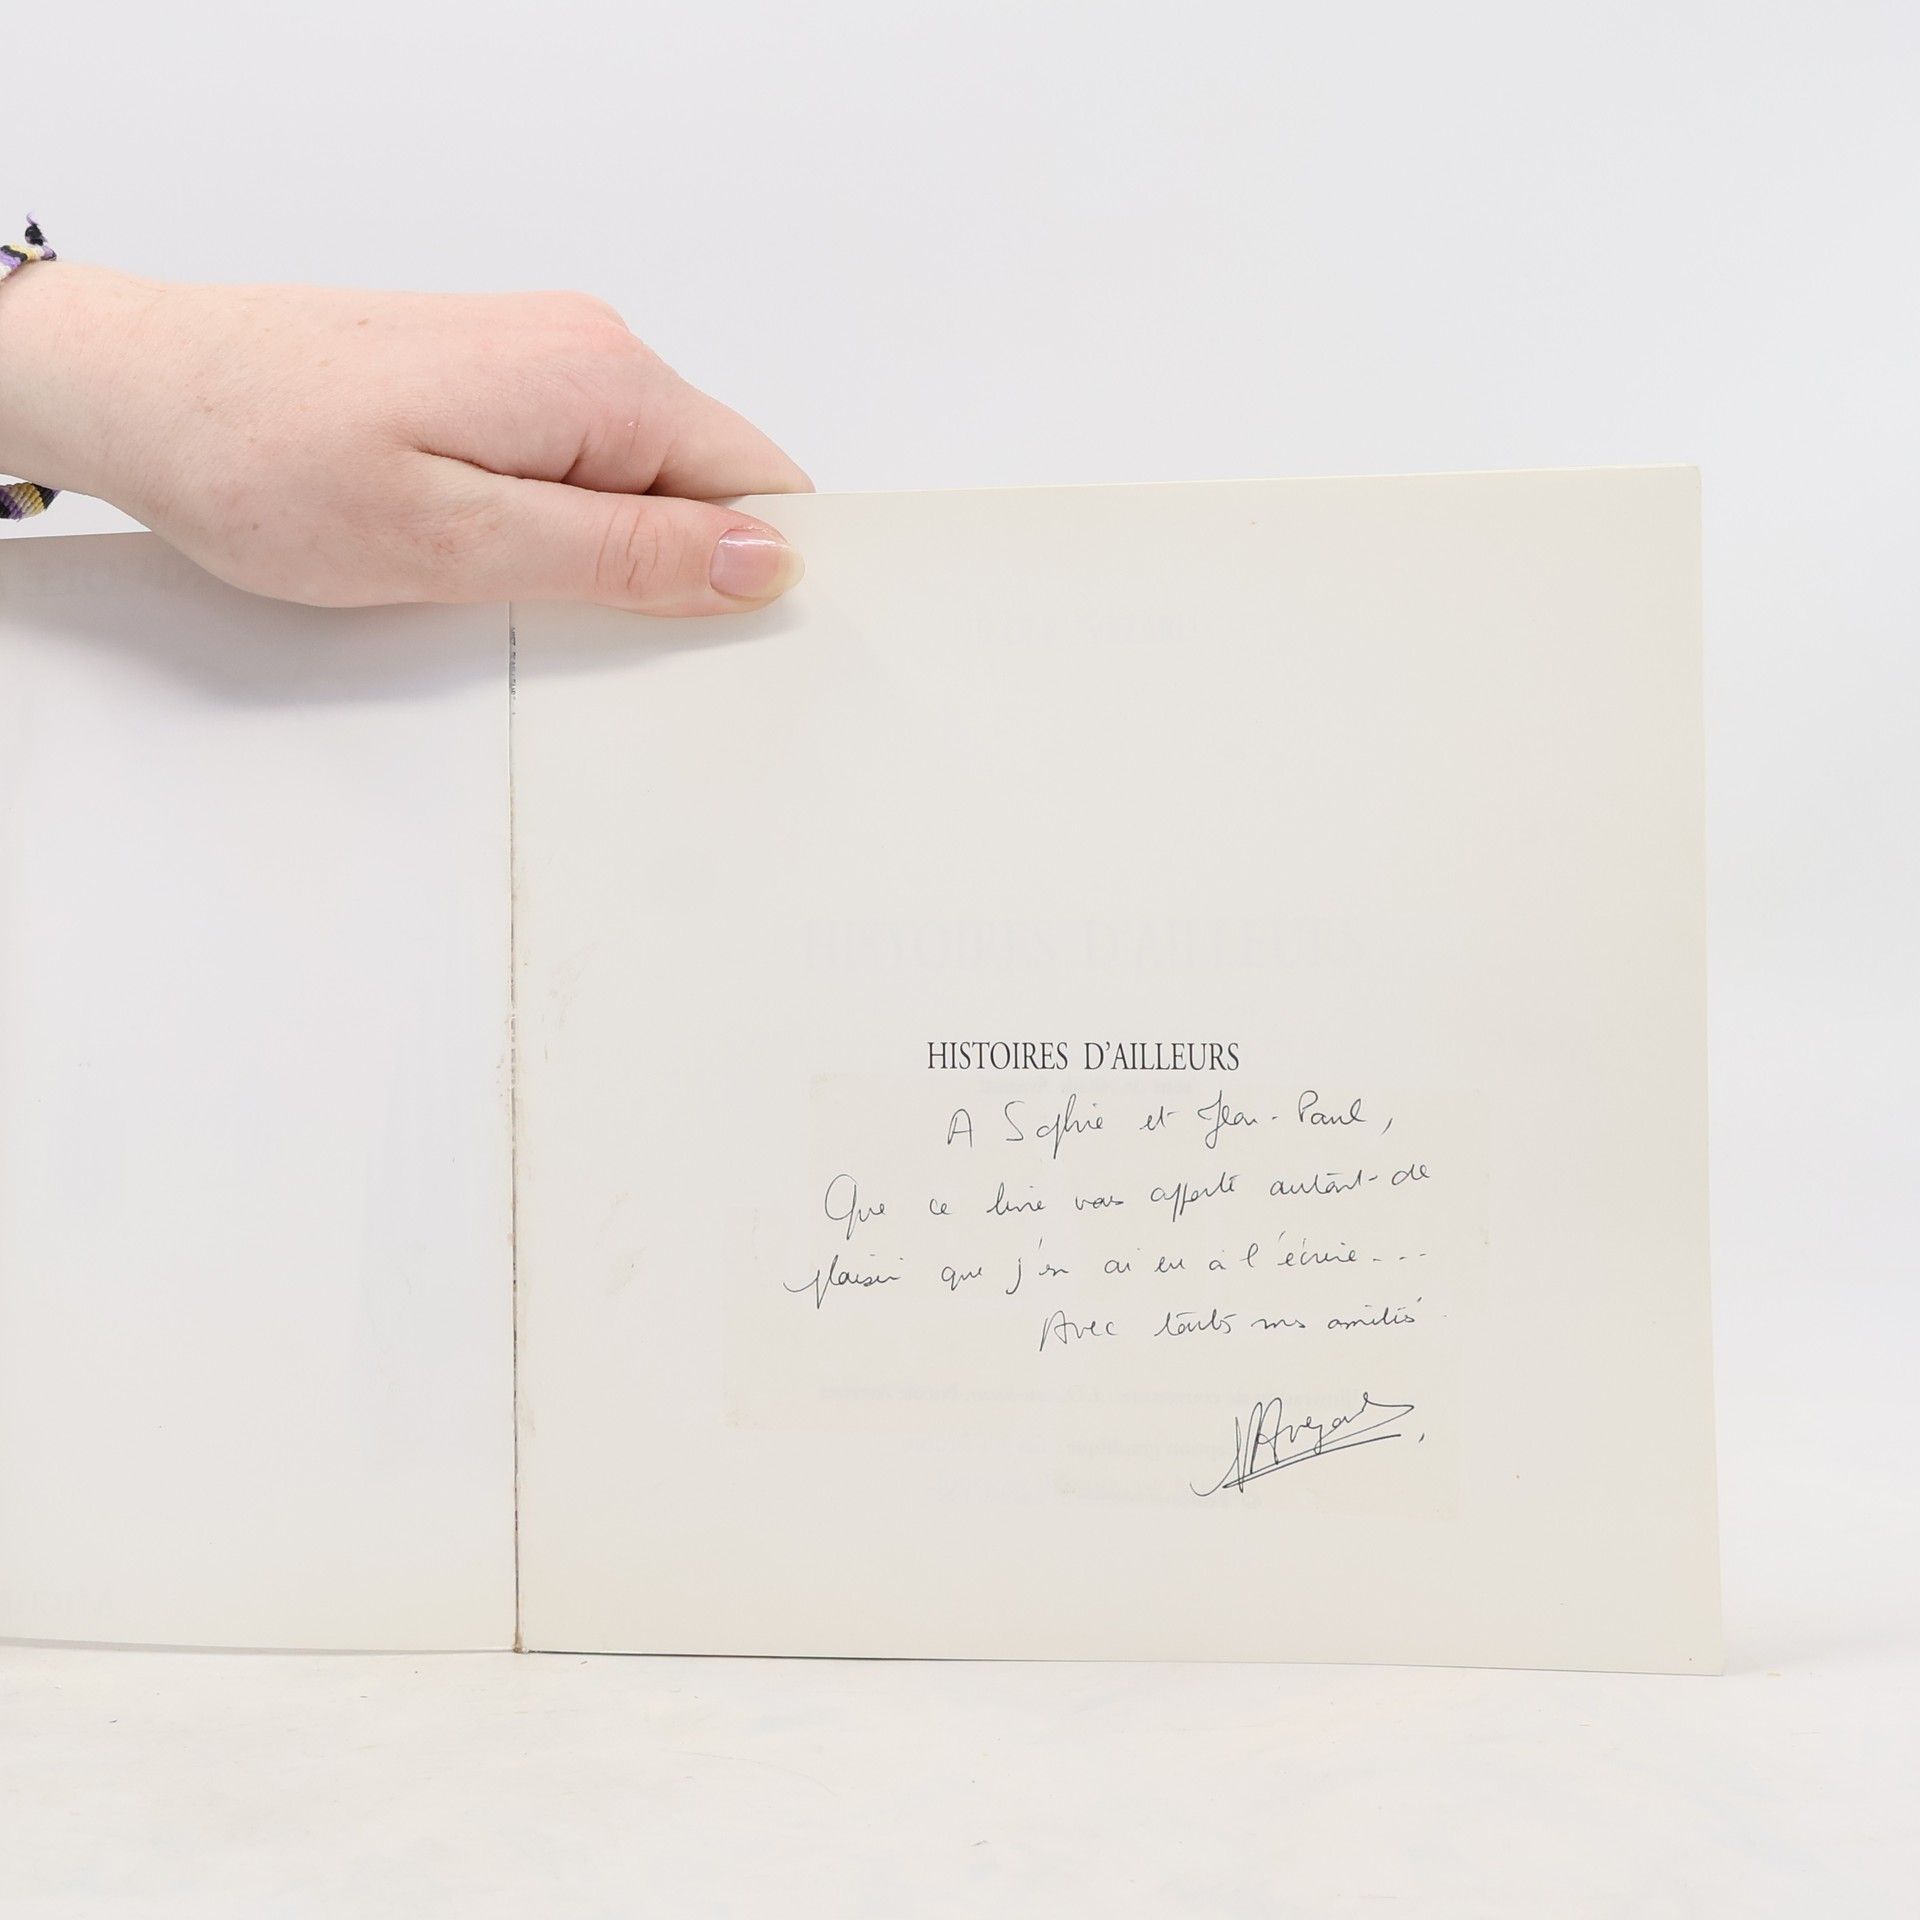 HISTOIRES D'AILLEURS
A Sophie et Jean-Paul,
Que ce livre vous apporte autant de
plaisir que j'en ai eu à l'écrire...
Avec toutes mes amitiés.